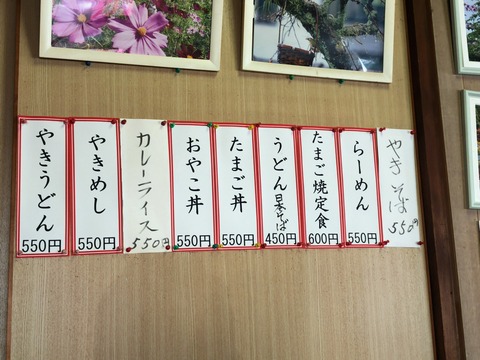 やきそば
550円
らーめん
550円
たまご焼定食
600円
うどん
日本そば
450円
たまご丼
550円
おやこ丼
550円
カレーライス
550円
やきめし
550円
やきうどん
550円